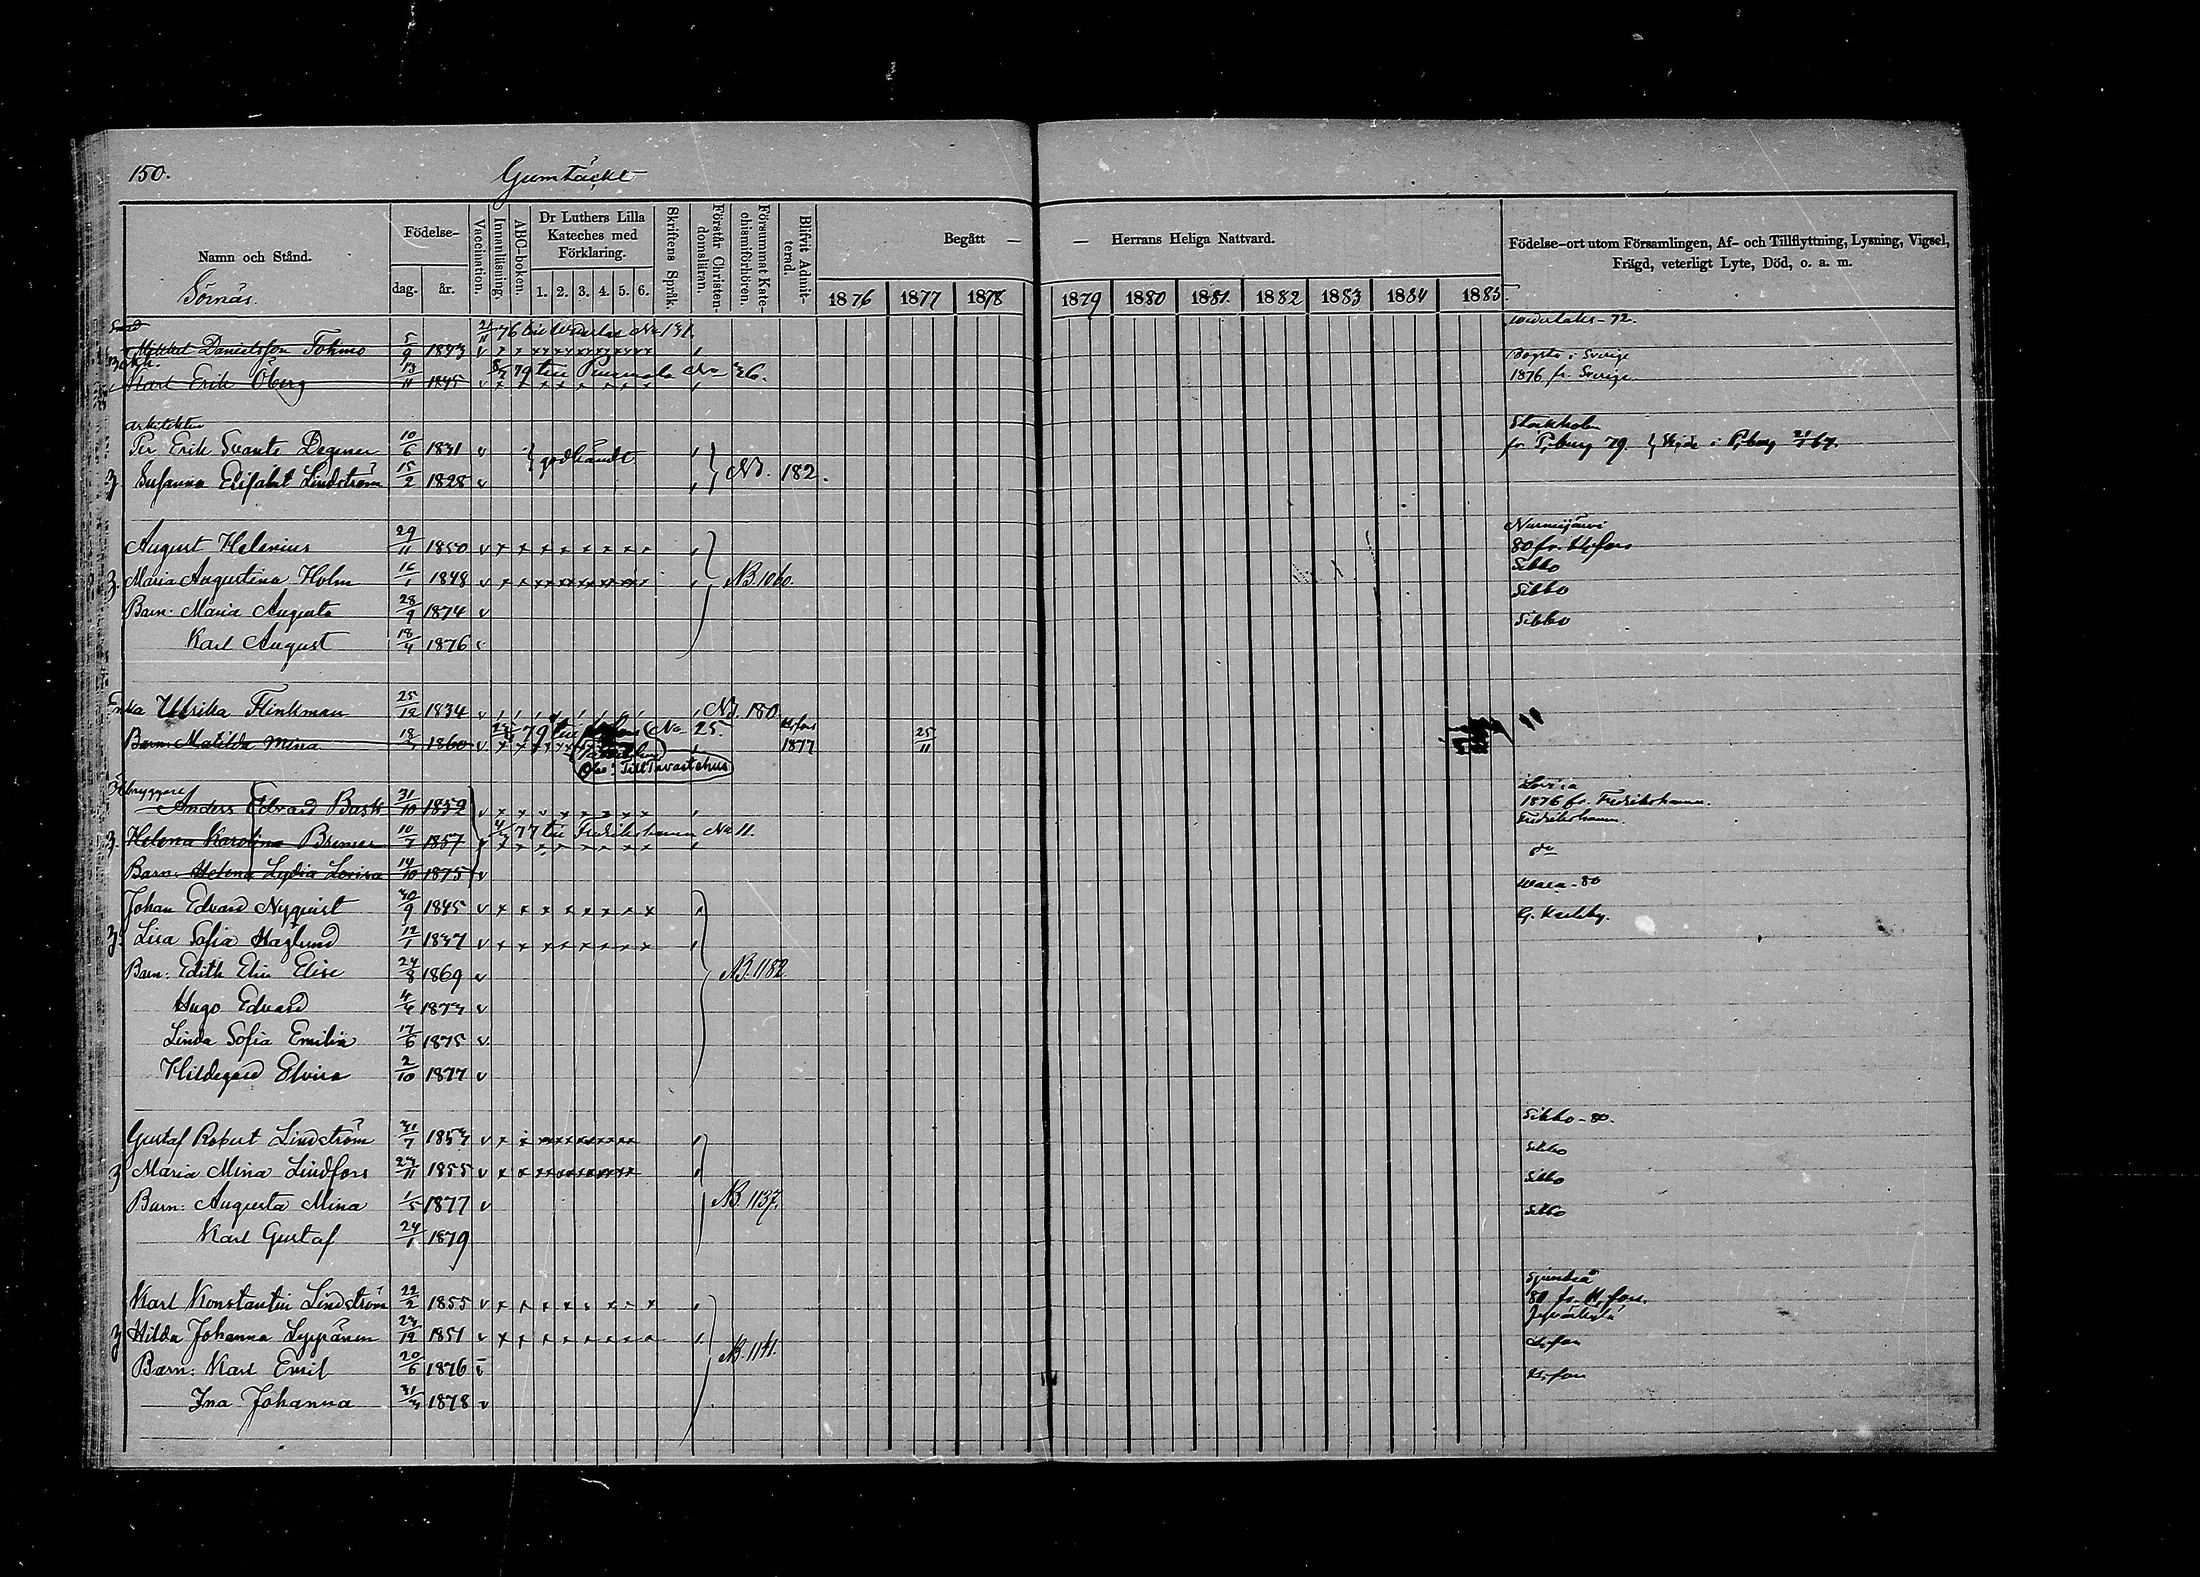 150.
Gumtäckt
Namn och Stånd.
Sörnäs.
Födelse-
dag.
år.
Vaccination.
Innanläsning.
ABC-boken.
Dr Luthers Lilla
Kateches med
Förklaring.
1. 2. 3. 4. 5. 6.
Skriftens Språk.
Förstår Christen-
domsläran.
Försummat Kate-
chismiförhören.
Blifvit Admitt-
terad.
Begått — — Herrans Heliga Nattvard.
1876 1877 1878 1879 1880 1881 1882 1883 1884 1885.
Födelse-ort utom Församlingen, Af- och Tillflyttning, Lysning, Vigsel,
Frägd, veterligt Lyte, Död, o. a. m.
21/11 76 till No 131.
72.
Mikkel Danielsson 5/9 1843 v
i Sverige
5/3 79 till No 36.
Karl Erik Öberg 13/11 1845 v
1876 fr. Sverige
arkitekten
Stockholm
Per Erik Svante Degener 10/6 1831 v godkändt
fr. P,burg 79. i P,burg 67.
3. Susanna Elisabet Lindström 15/2 1828 v NB. 182.
Nurmijärvi
August Helenius 29/11 1850 v
80 fr. H,fors
3. Maria Augustina Holm 16/1 1848 v NB. 1060.
Sibbo
Sibbo
Barn: Maria Augusta 28/9 1874 v
Sibbo
Karl August 18/4 1876 v
Enka Ulrika Flinkman 25/12 1834 v NB. 180
79 till No 25. H,fors
Barn: Matilda Mina 18/ 1860 v 1877 25/11
Till Tavastehus
Lovisa
Anders Edvard Bask 31/10 1852 v
1876 fr. Fredrikshamn.
4/ 77 till Fredrikshamn No 11.
Fredrikshamn.
3. Helena Karolina 10/7 1857 v
do
Barn: Helena Lydia Lovisa 14/10 1875 v
Wasa - 80
Johan Edvard Nyqvist 30/9 1845 v
G. Karleby.
3. Lisa Sofia Haglund 12/1 1837 v
Barn: Edith Elin Elise 24/8 1869 v NB. 1182
Hugo Edvard 4/4 1873 v
Linda Sofia Emilia 17/6 1875 v
Hildegard Elvira 2/10 1877 v
Sibbo - 80.
Gustaf Robert Lindström 31/7 1853 v
Sibbo
3 Maria Mina Lindfors 23/11 1855 v
Sibbo
Barn: Augusta Mina 1/5 1877 v NB. 1137.
Sibbo
Karl Gustaf 24/1 1879
Sjundeå
Karl Konstantin Lindström 22/2 1855 v
80 fr. H,fors.
3 Hilda Johanna Leppänen 23/12 1851 v
H,fors
Barn: Karl Emil 20/6 1876 v NB. 1141.
H,fors
Ina Johanna 31/3 1878 v